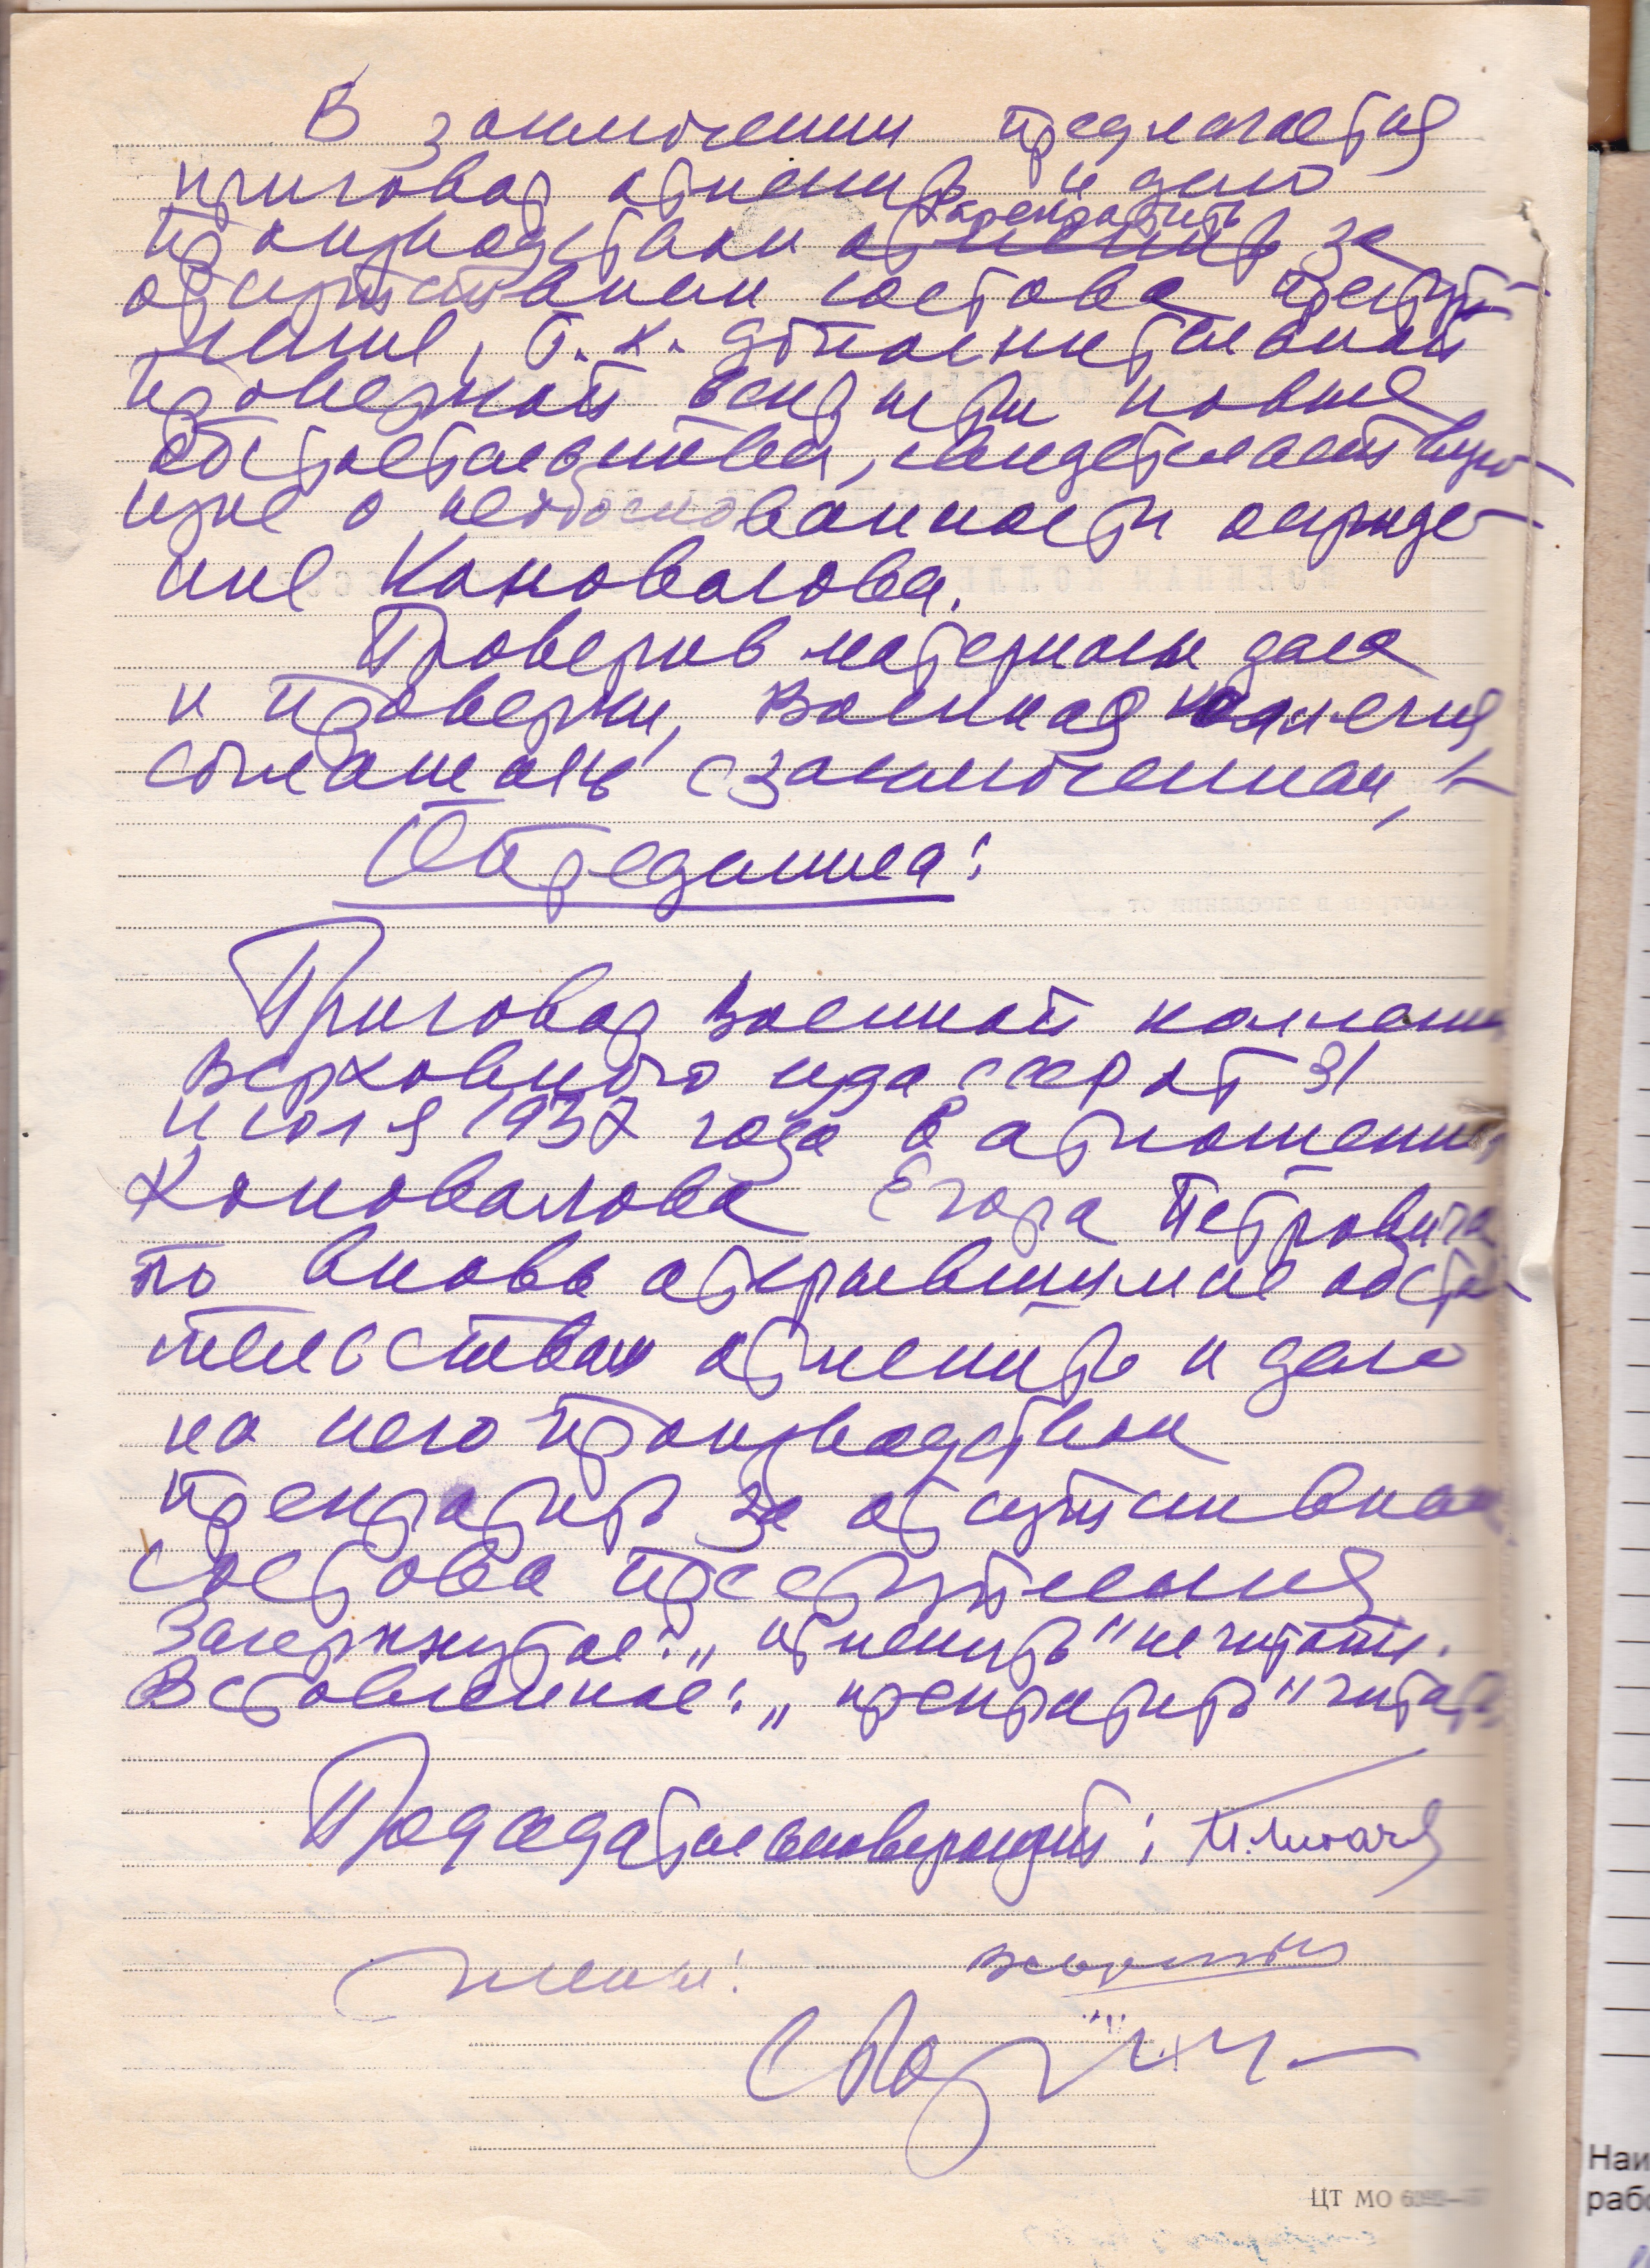 В заключении предлагается
приговор отменить и дело
прекратить
производством отменить за
отсутствием состава преступ-
ления, т.к. дополнительной
проверкой вскрыты новые
обстоятельства, свидетельствую-
щие о необоснованности осужде-
ния Коновалова.
Проверив материалы дела
и проверки, Военная коллегия
согласилась с заключением, и
Определила:
Приговор Военной коллегии
Верховного суда СССР от 31
июля 1937 года в отношении
Коновалова Егора Петровича
по вновь открывшимся обстоя-
тельствам отменить и дело
на него производством
прекратить за отсутствием
состава преступления
Зачеркнутое: „отменить" не читать.
Вставленное: „прекратить" читать
Председательствующий:
Члены:
ЦТ МО
Наи
рабо